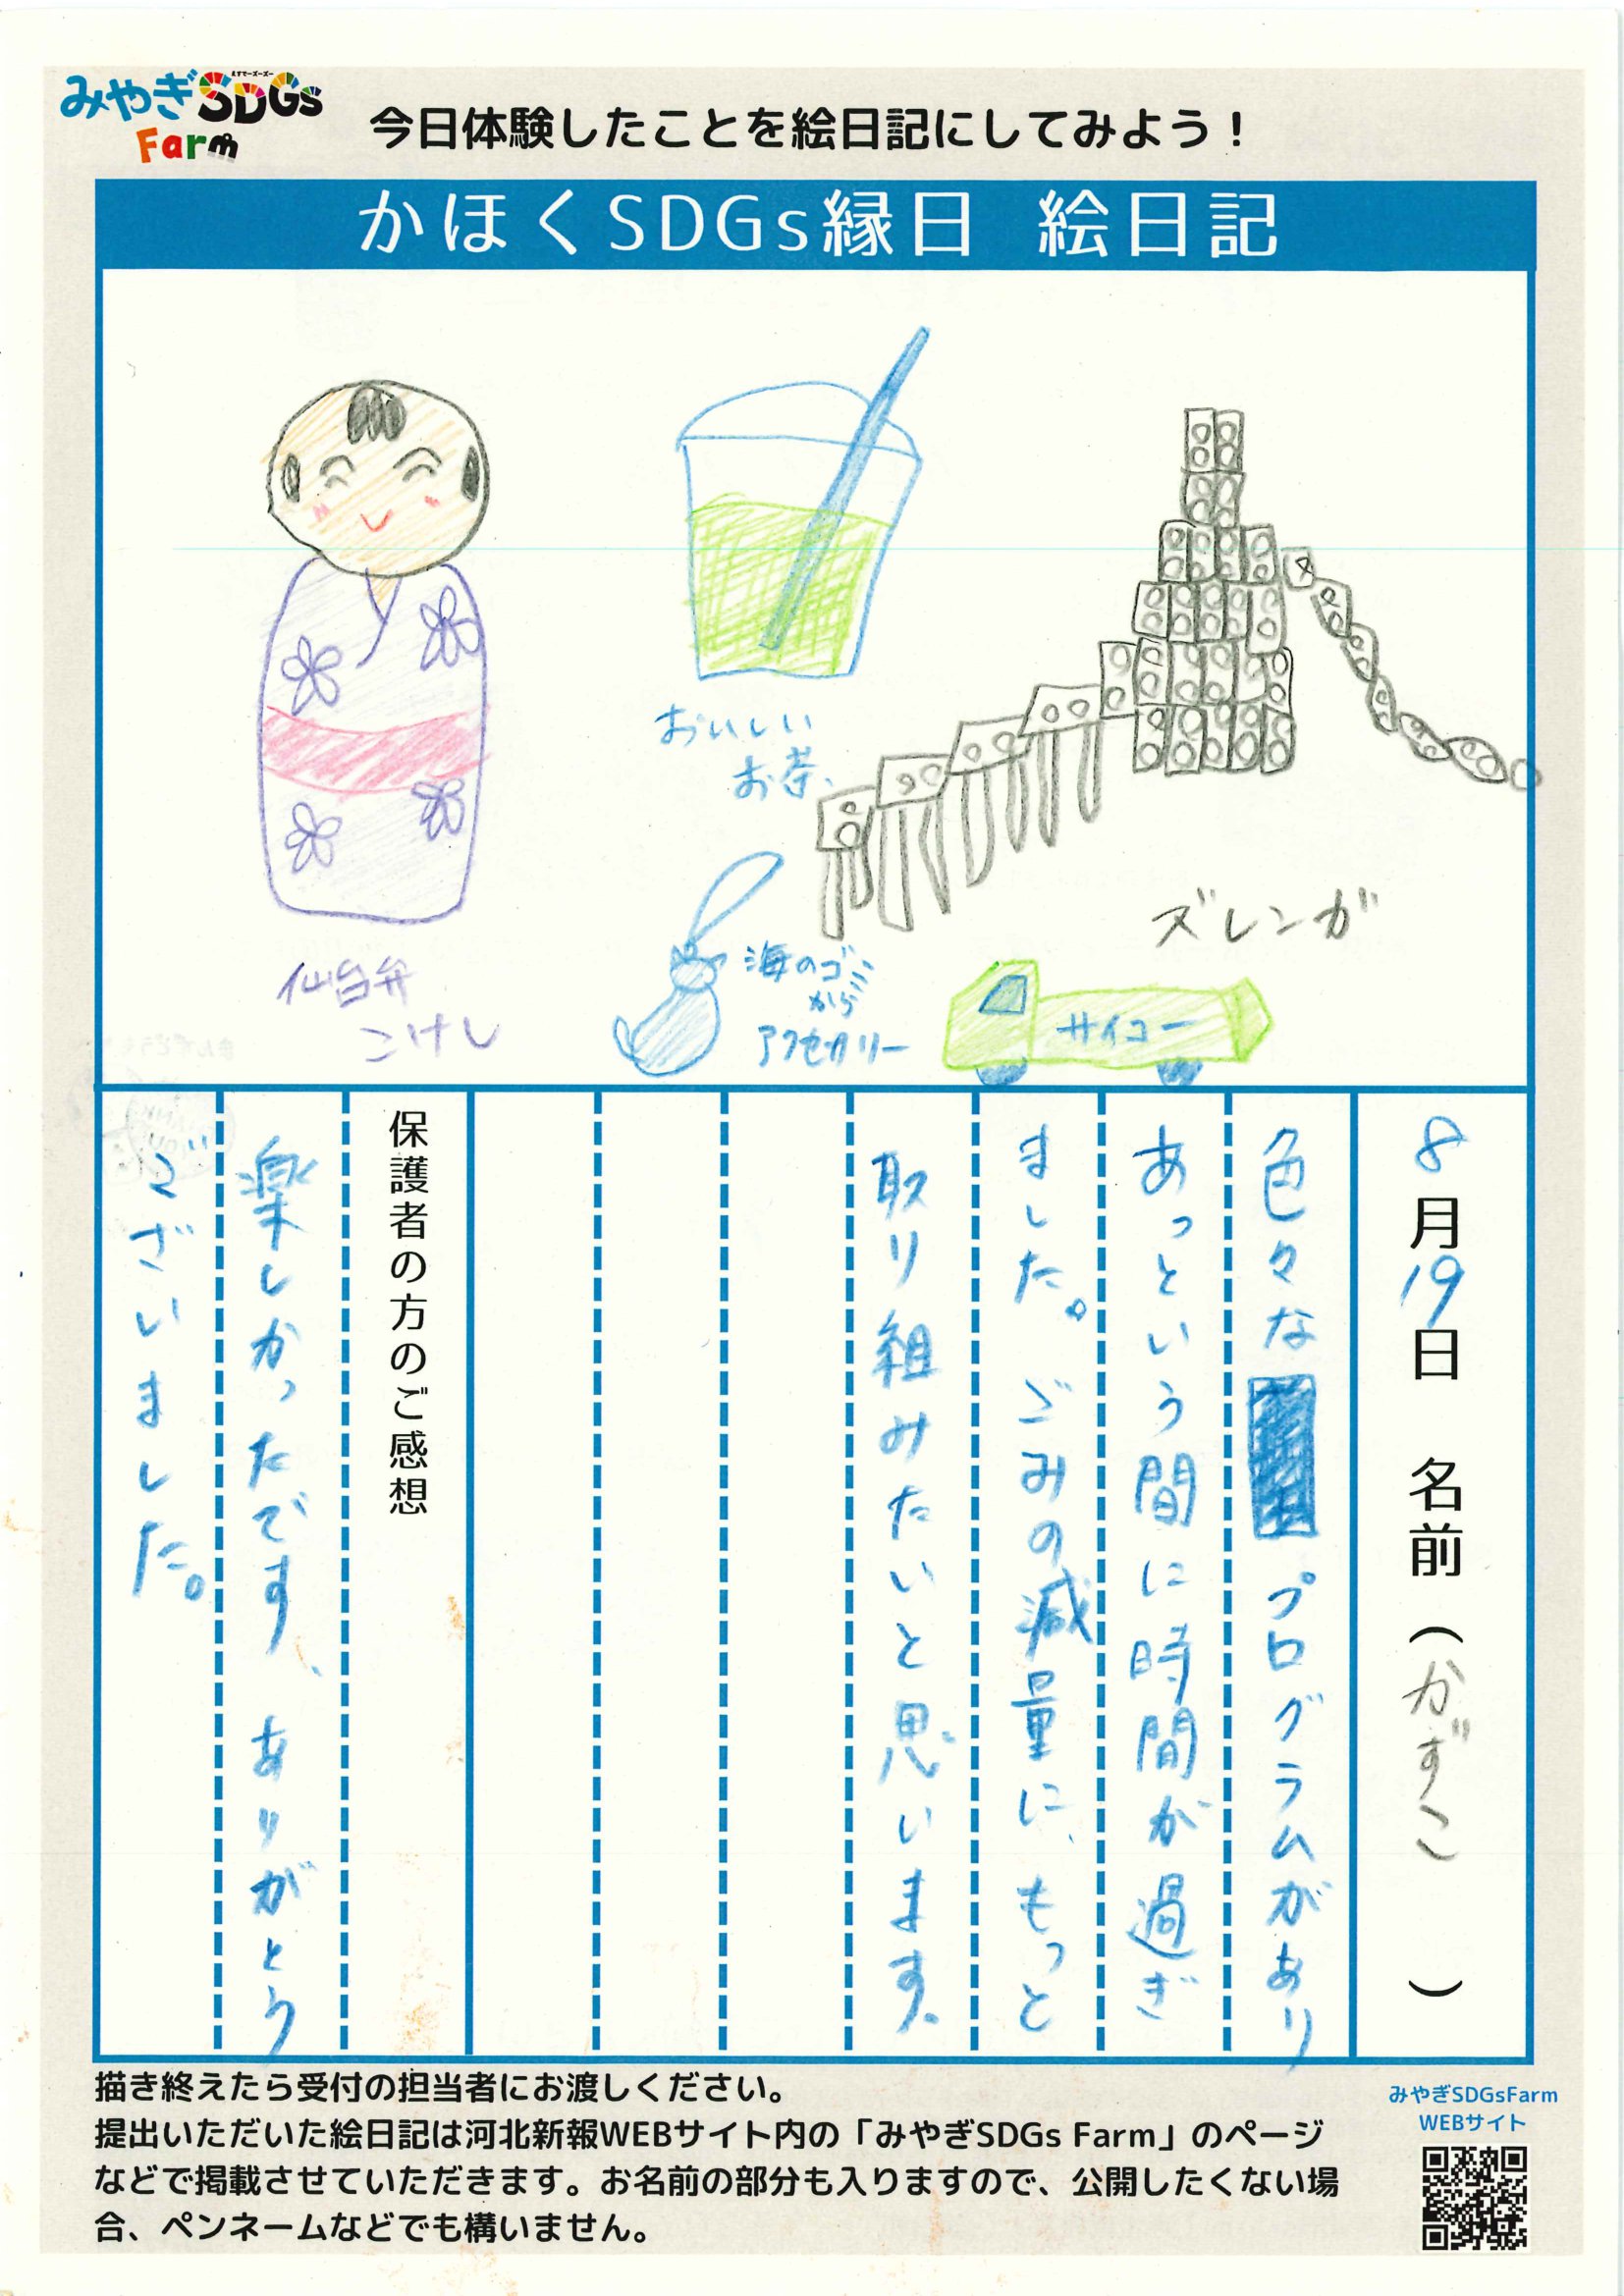 みやぎSDGs
えすでーじーズ
Farm
今日体験したことを絵日記にしてみよう！
かほくSDGs縁日 絵日記
仙台弁
こけし
おいしい
お茶、
海のゴミ
から
アクセサリー
ズレンガ
サイコー
8月19日 名前（かずこ）
色々なプログラムがあり
あっという間に時間が過ぎ
ました。ごみの減量に、もっと
取り組みたいと思います。
保護者の方のご感想
楽しかったです、ありがとう
ございました。
描き終えたら受付の担当者にお渡しください。
提出いただいた絵日記は河北新報WEBサイト内の「みやぎSDGs Farm」のページ
などで掲載させていただきます。お名前の部分も入りますので、公開したくない場
合、ペンネームなどでも構いません。
みやぎSDGsFarm
WEBサイト